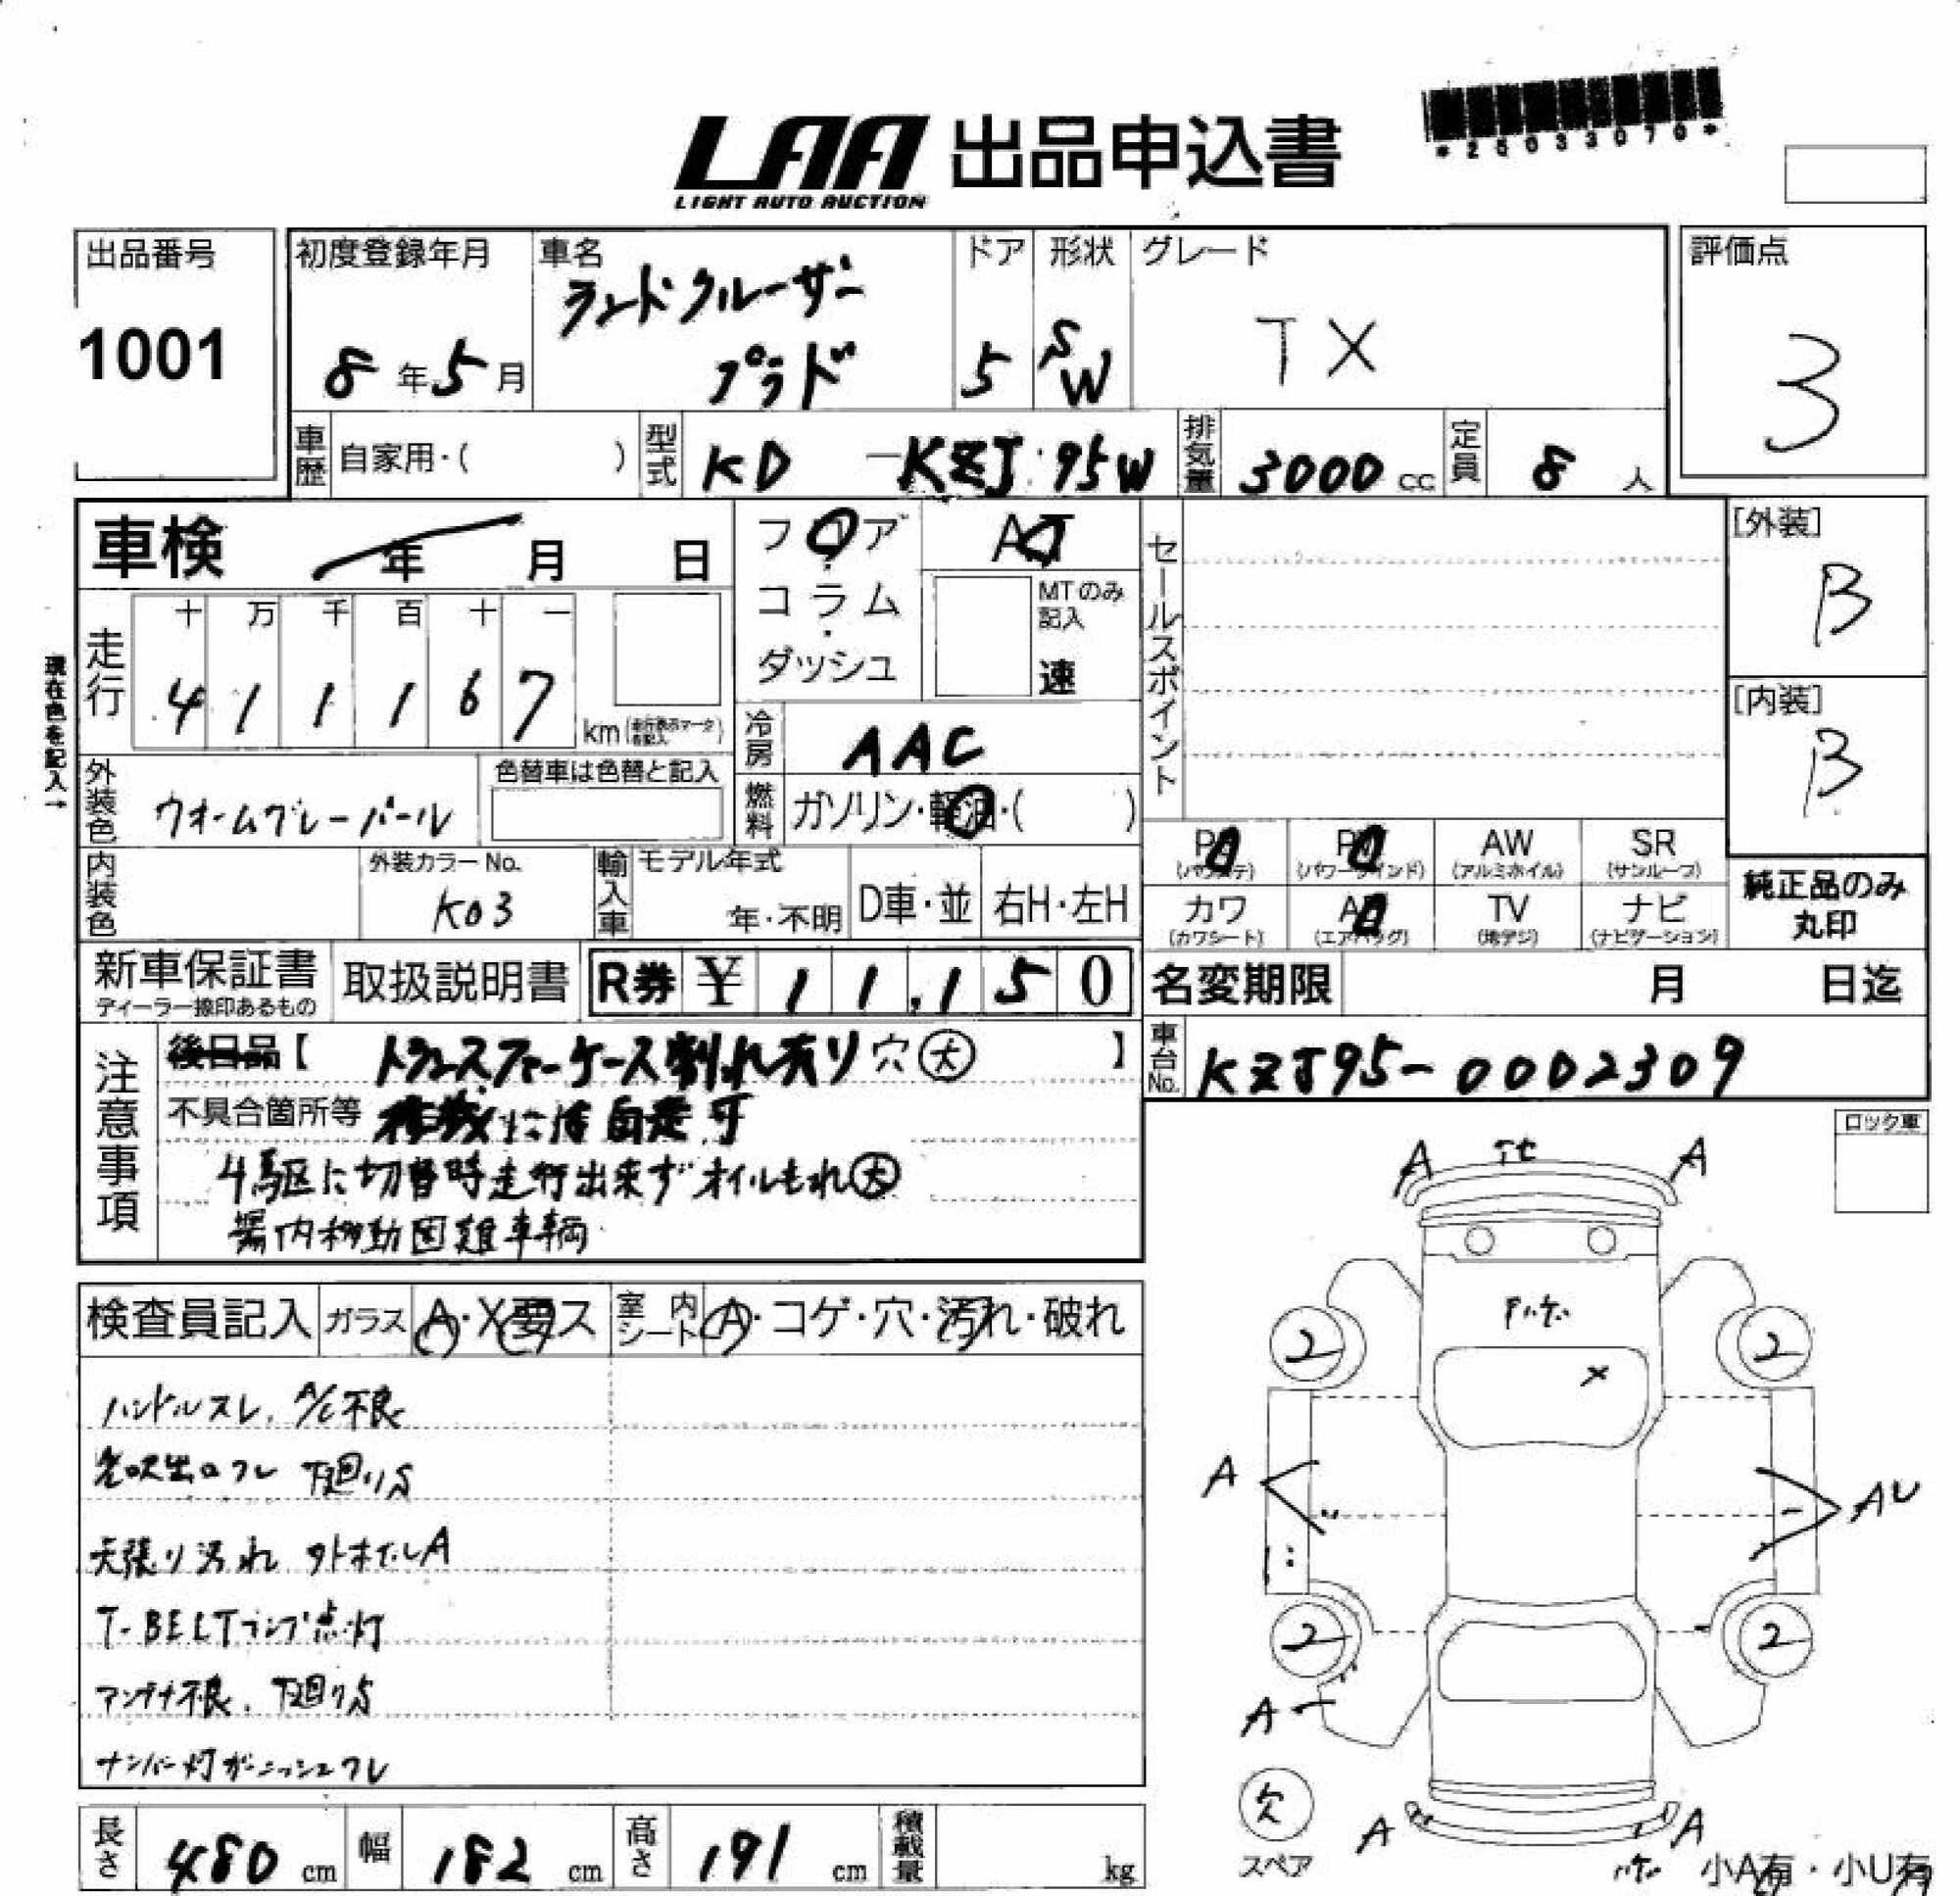 LAA 出品申込書
LIGHT AUTO AUCTION
*25033070*
出品番号
1001
初度登録年月
8年5月
車名
ランドクルーザー
プラド
ドア
5
形状
SW
グレード
TX
評価点
3
車歴 自家用・( )
型式 KD -KZJ95W
排気量 3000cc
定員 8人
車検 年 月 日
フロア・コラム・ダッシュ
AT
MTのみ記入
速
セールスポイント
[外装]
B
[内装]
B
現在色を記入→
走行
十 万 千 百 十 一
4 1 1 1 6 7
km
冷房 AAC
外装色 ウォームグレーパール
色替車は色替と記入
燃料 ガソリン・軽油・( )
内装色
外装カラーNo.
K03
輸入車
モデル年式
年・不明
D車・並
右H・左H
PS (パワステ)
PW (パワーウインド)
AW (アルミホイル)
SR (サンルーフ)
カワ (カワシート)
AB (エアバッグ)
TV (地デジ)
ナビ (ナビゲーション)
純正品のみ
丸印
新車保証書
ディーラー捺印あるもの
取扱説明書
R券 ¥ 11,150
名変期限 月 日迄
車台No. KZJ95-0002309
注意事項
後日品【 トランスファーケース割れ有り 穴大 】
不具合箇所等 自走可
4駆に切替時走行出来ず オイルもれ大
場内移動困難車輌
ロック車
検査員記入
ガラス A・X要ス
室内シート A・コゲ・穴・汚れ・破れ
ハンドルスレ、A/C不良
吹出口ワレ 下廻りS
天張り汚れ 外ホイルA
T-BELTランプ点灯
アンテナ不良、下廻りS
ナンバー灯ガーニッシュワレ
A A
2 2
X
A AU
2 2
A
欠
スペア
A A
小A有・小U有
長さ 480cm
幅 182cm
高さ 191cm
積載量 kg